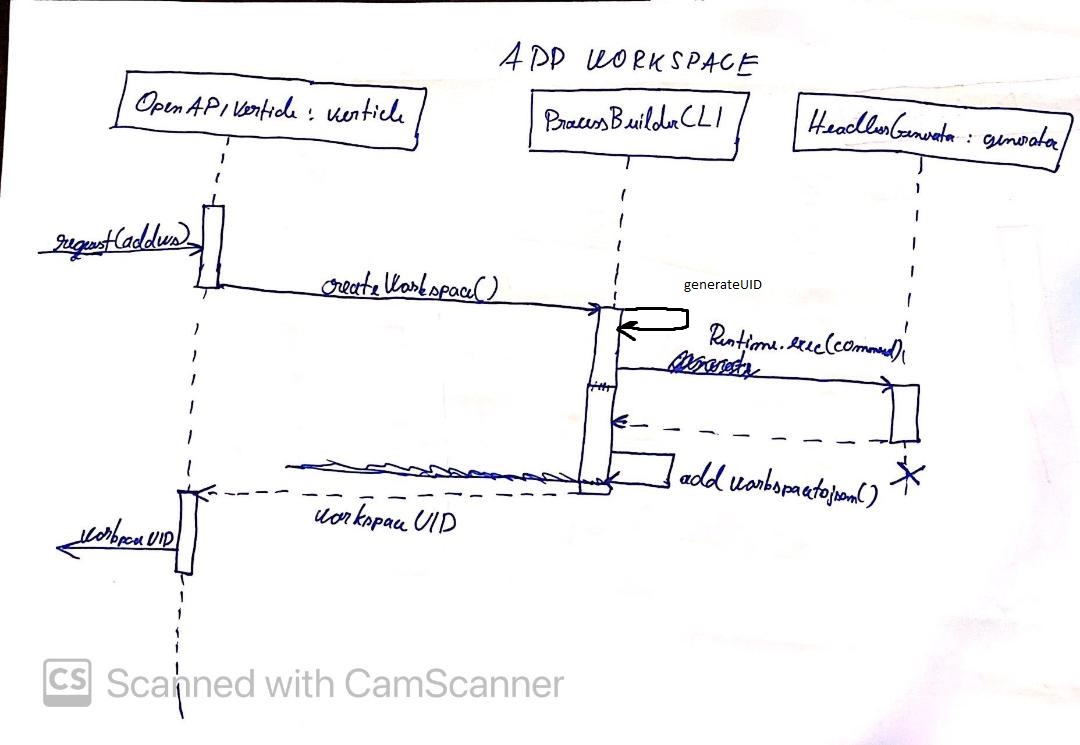 ADD WORKSPACE
OpenAPIVerticle : verticle
ProcessBuilderCLI
HeadlessGenerator : generator
request(addws)
createWorkspace()
generateUID
Runtime.exec(command)
add workspacetojson()
workspace UID
workspace UID
CS Scanned with CamScanner